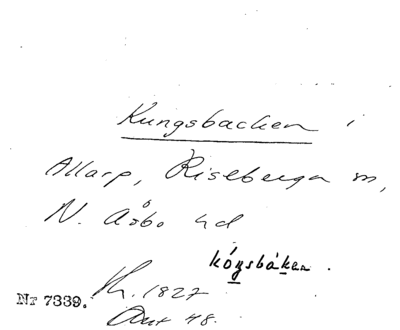 Kungsbacken i
Allarp, Riseberga sn,
N. Åsbo hd
kóŋsbáken.
Nr 7339. 1827
48.